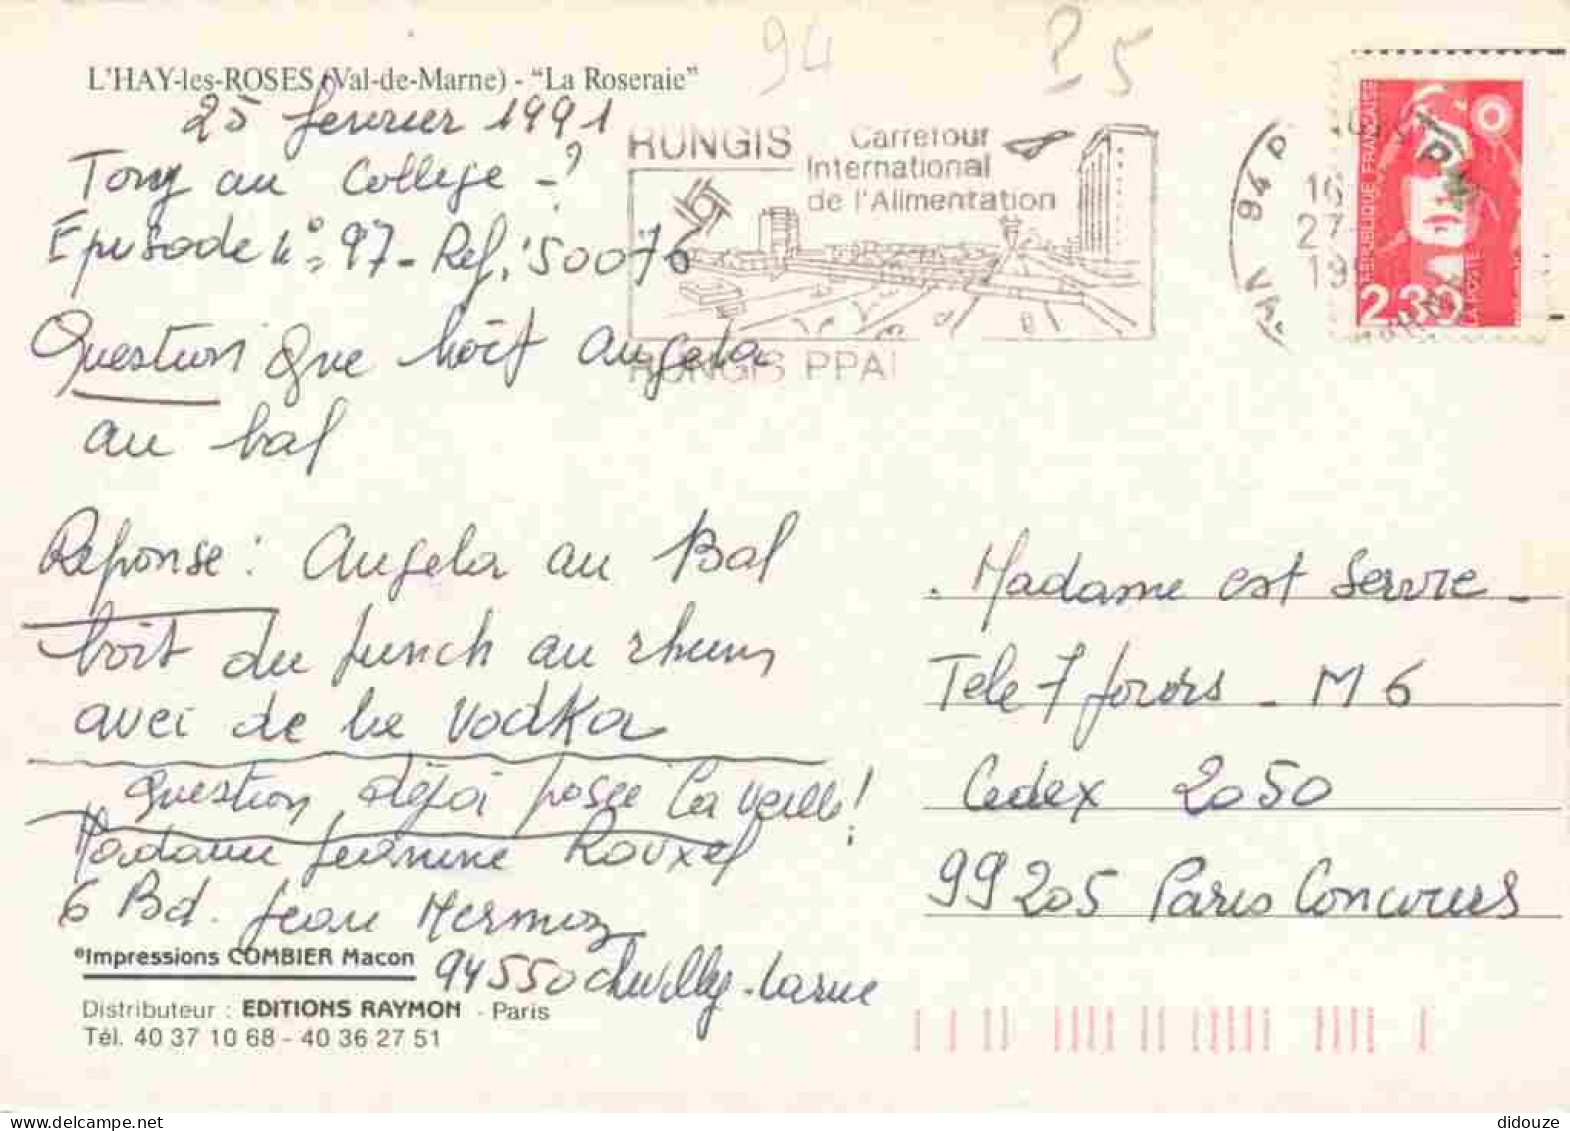 94 25
L'HAY-les-ROSES (Val-de-Marne) - "La Roseraie"
25 fevrier 1991
Tony au College - ?
Episode n° 97 - Ref. 50076
Question Que boit Angela
au bal
Reponse : Angela au Bal
boit du punch au rhum
avec de la vodka
question déjà posée la veille !
Madame Jeanine Rouxel
6 Bd. Jean Mermoz
94550 Chevilly-Larue
°Impressions COMBIER Macon
Distributeur : EDITIONS RAYMON - Paris
Tél. 40 37 10 68 - 40 36 27 51
RUNGIS Carrefour
International
de l'Alimentation
RUNGIS PPAL
94 P
16
27
19
VA
REPUBLIQUE FRANÇAISE
2,30
LA POSTE
Madame est Servie -
Tele 7 jours - M 6
Cedex 2050
99205 Paris Concours
didouze